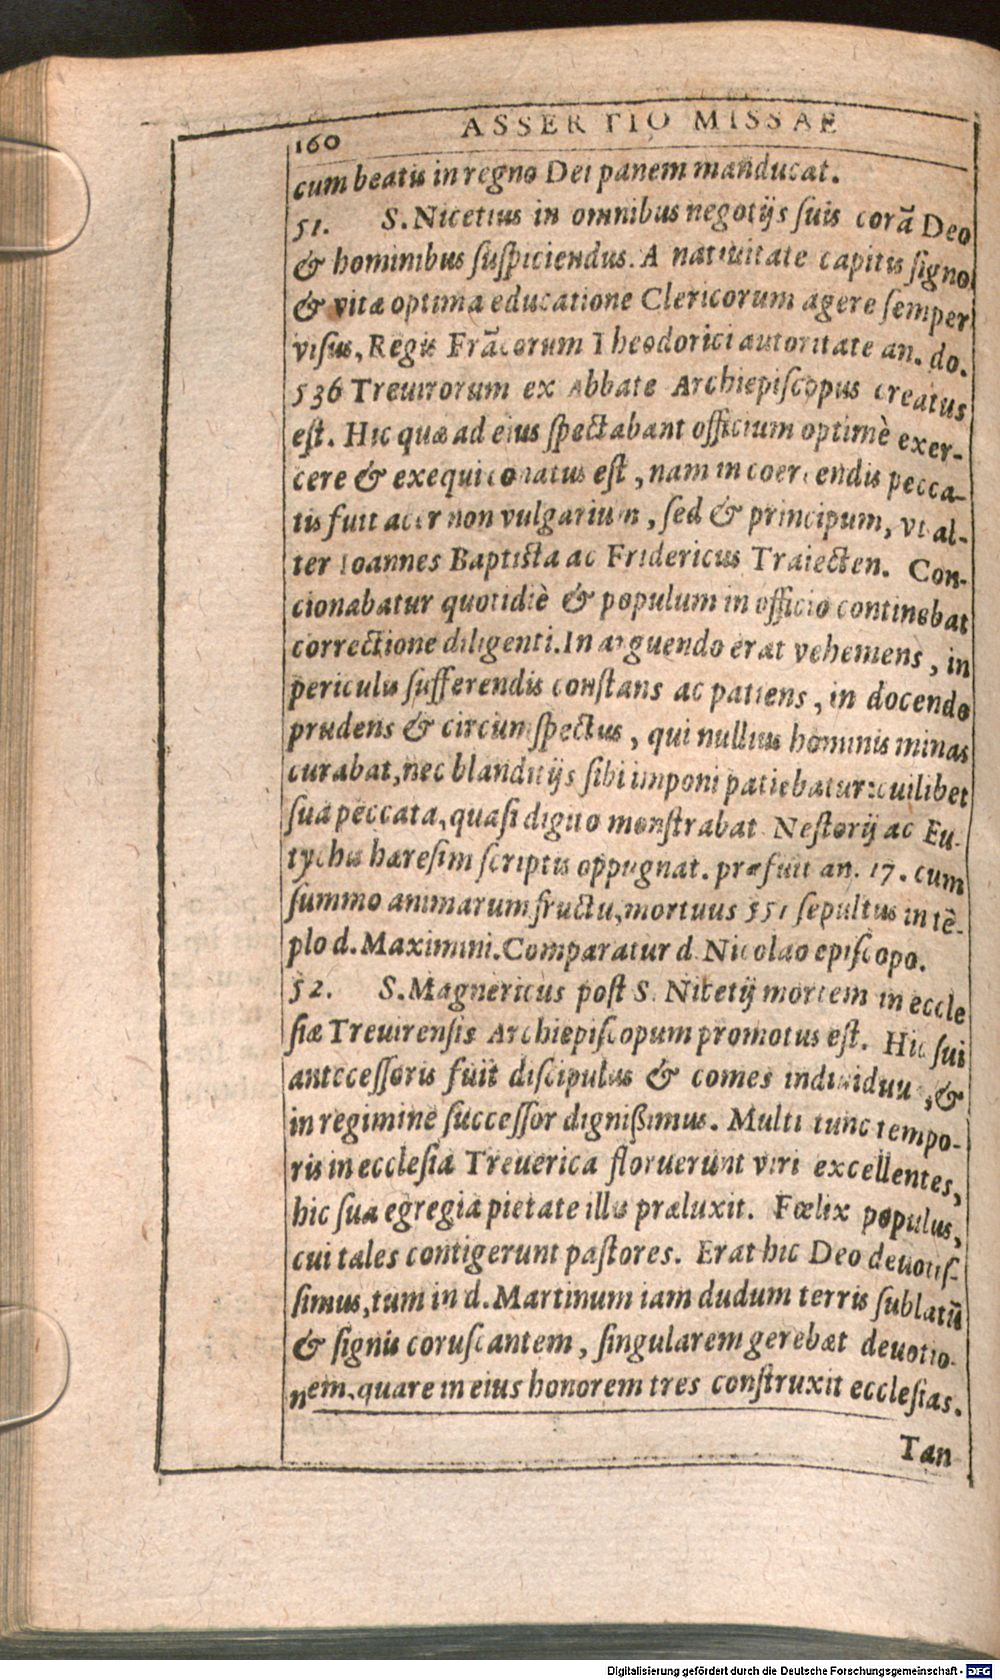 160
ASSERTIO MISSAE
cum beatis in regno Dei panem manducat.
51. S. Nicetius in omnibus negotijs suis corã Deo
& hominibus suspiciendus. A natiuitate capitis signo
& vitæ optima educatione Clericorum agere semper
visus, Regis Frãcorum Theodorici autoritate an. do.
536 Treuirorum ex Abbate Archiepiscopus creatus
est. Hic quæ ad eius spectabant officium optimè exer-
cere & exequi conatus est, nam in coercendis pecca-
tis fuit acer non vulgarium, sed & principum, vt al-
ter Ioannes Baptista ac Fridericus Traiecten. Con-
cionabatur quotidiè & populum in officio continebat
correctione diligenti. In arguendo erat vehemens, in
periculis sufferendis constans ac patiens, in docendo
prudens & circumspectus, qui nullius hominis minas
curabat, nec blanditijs sibi imponi patiebatur: cuilibet
sua peccata, quasi digito monstrabat Nestorij ac Eu-
tychis hæresim scriptis oppugnat. præfuit an. 17. cum
summo animarum fructu, mortuus 551 sepultus in tẽ-
plo d. Maximini. Comparatur d. Nicolao episcopo.
52. S. Magnericus post S. Nicetij mortem in eccle
siæ Treuirensis Archiepiscopum promotus est. Hic sui
antecessoris fuit discipulus & comes indiuiduu, &
in regimine successor dignißimus. Multi tunc tempo-
ris in ecclesia Treuerica floruerunt viri excellentes,
hic sua egregia pietate illis præluxit. Fœlix populus,
cui tales contigerunt pastores. Erat hic Deo deuotis-
simus, tum in d. Martinum iam dudum terris sublatũ
& signis coruscantem, singularem gerebat deuotio-
nem, quare in eius honorem tres construxit ecclesias.
Tan
Digitalisierung gefördert durch die Deutsche Forschungsgemeinschaft - DFG